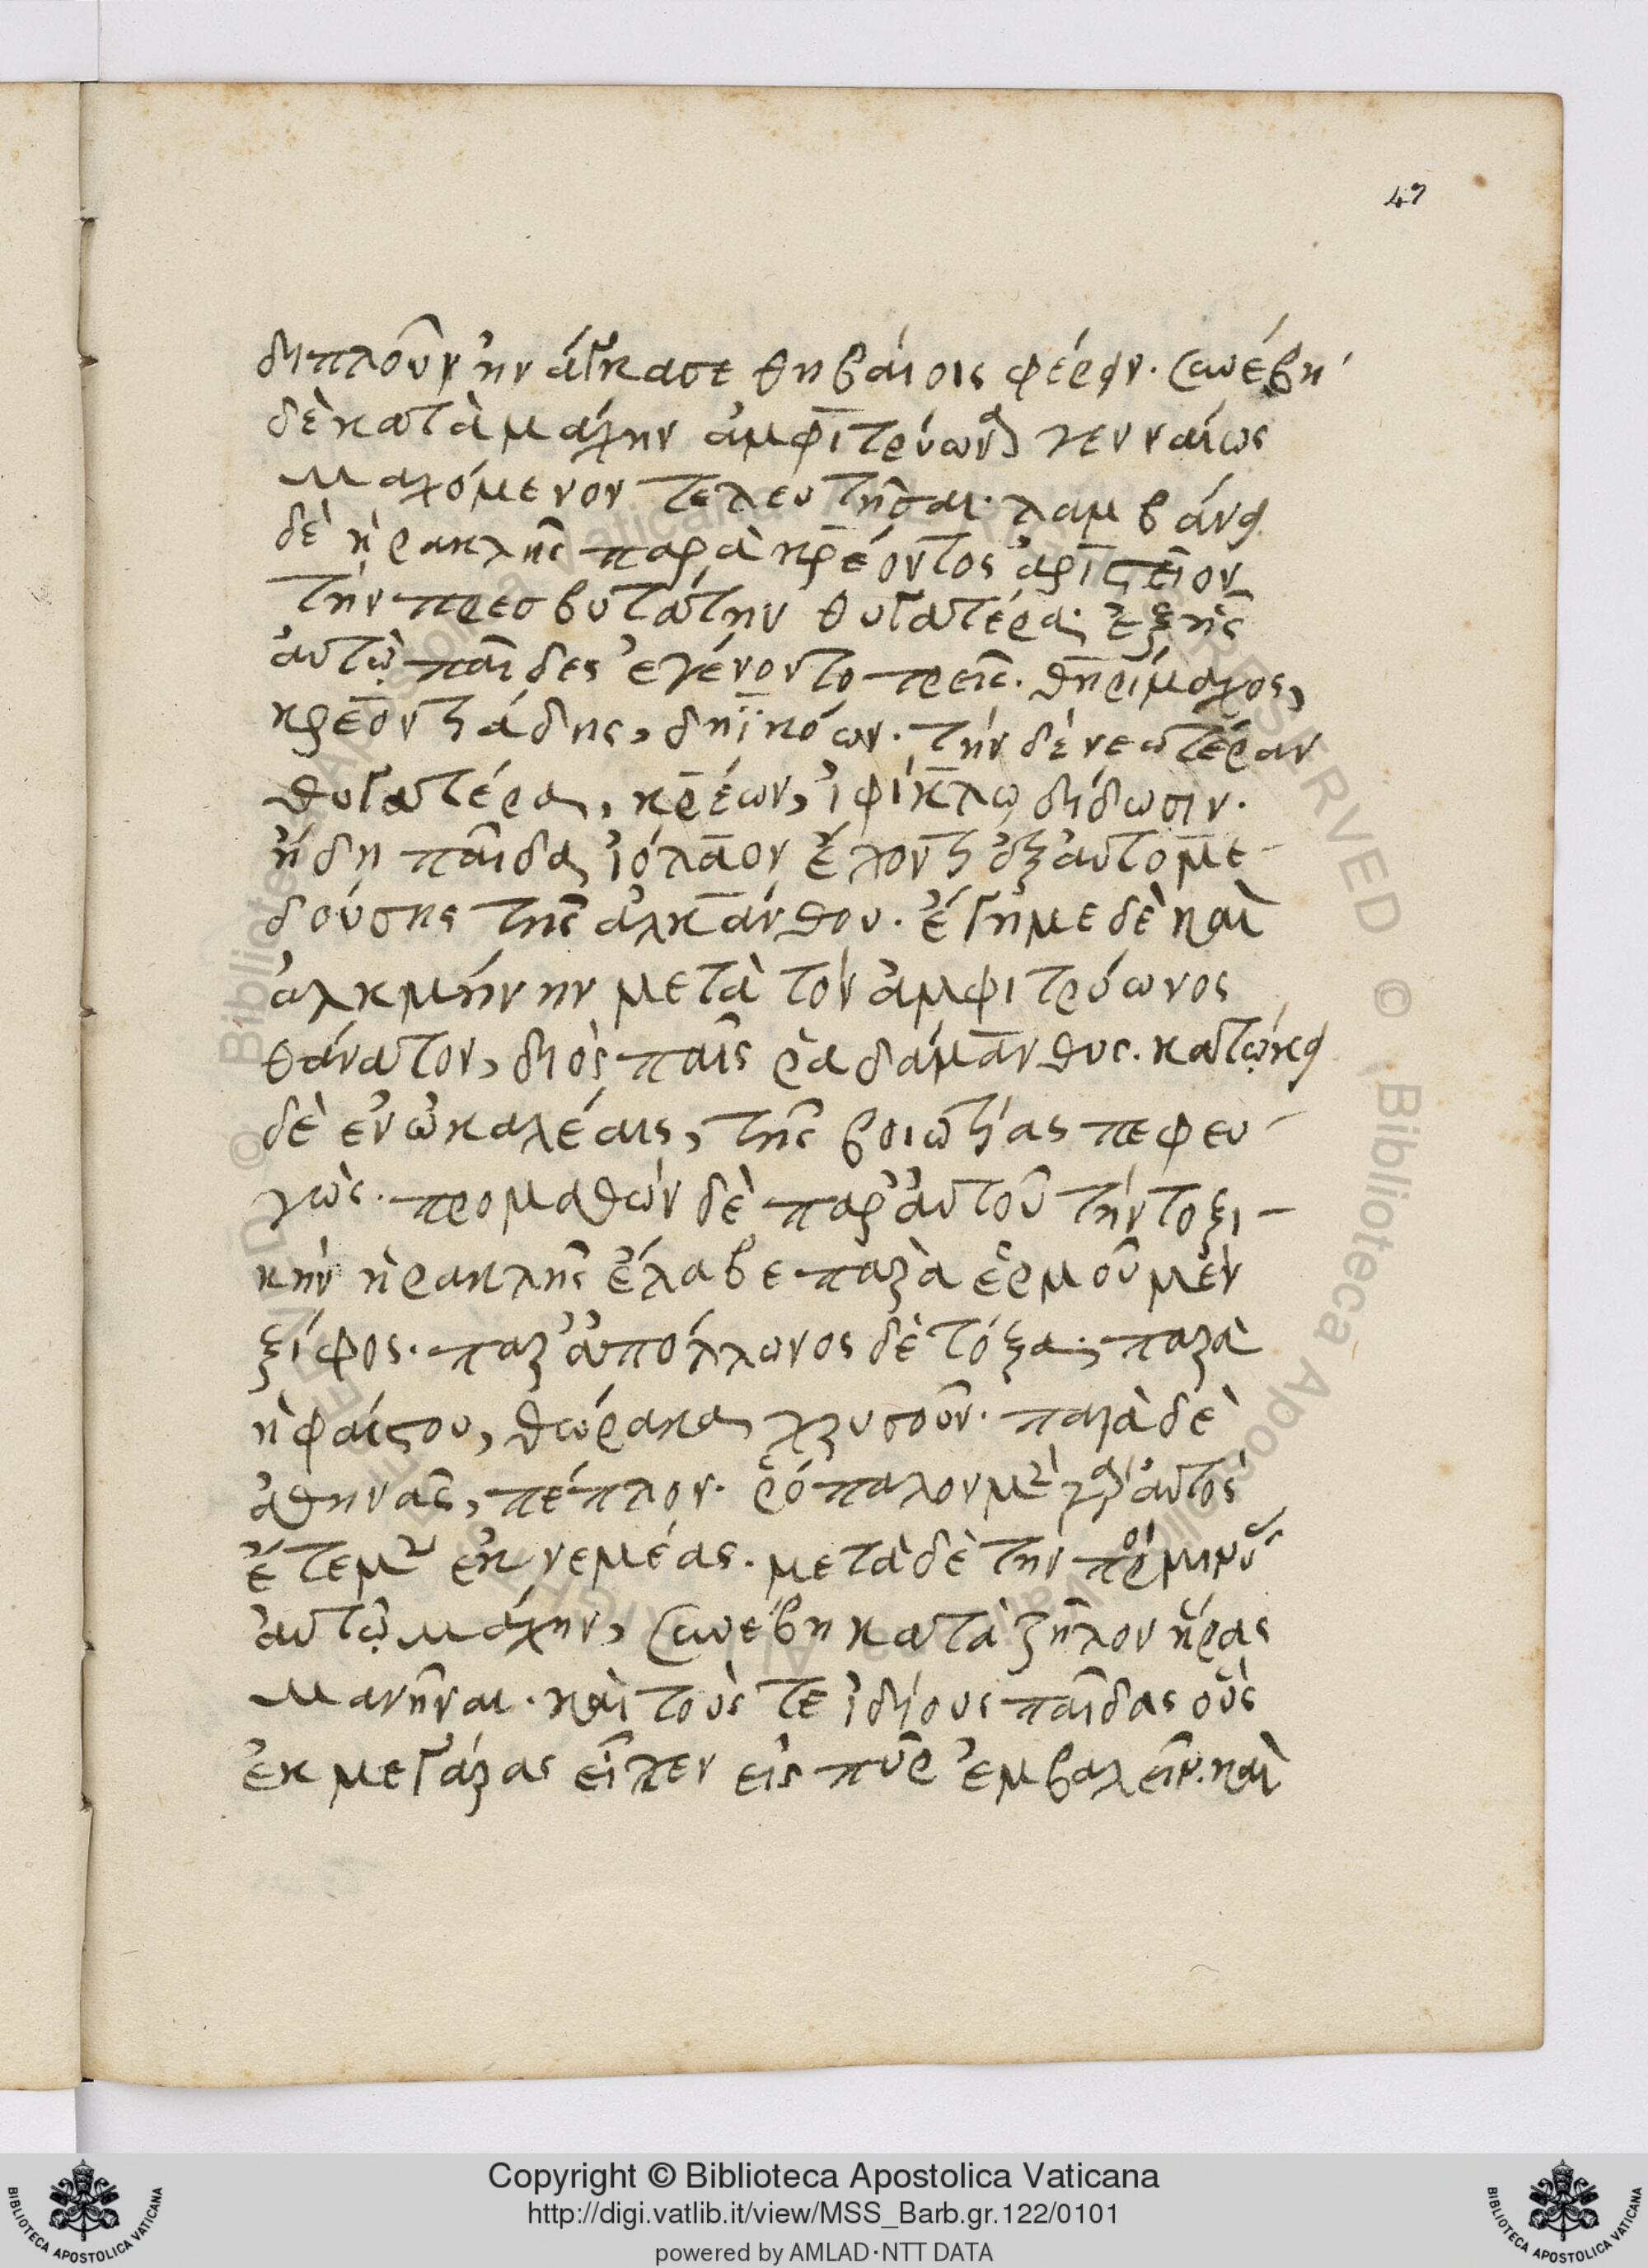 47
διπλοῦν ἠνάγκασε θηβαίοις φέρειν. συνέβη
δὲ κατὰ μάχην ἀμφιτρύωνα γενναίως
μαχόμενον τελευτῆσαι. λαμβάνει
δὲ ἡρακλῆς παρὰ κρέοντος ἀριστεῖον
τὴν πρεσβυτάτην θυγατέρα. ἐξ ἧς
αὐτῷ παῖδες ἐγένοντο τρεῖς. θηρίμαχος,
κρεοντιάδης, δηϊκόων. τὴν δὲ νεωτέραν
θυγατέρα, κρέων, ἰφίκλῳ δίδωσιν.
ἤδη παῖδα ἰόλαον ἔχοντι ἐξ αὐτομε-
δούσης τῆς ἀλκάνθου. ἔγημε δὲ καὶ
ἀλκμήνην μετὰ τὸν ἀμφιτρύωνος
θάνατον, διὸς παῖς ῥαδάμανθυς. κατῴκει
δὲ ἐν ὠκαλέαις, τῆς βοιωτίας πεφευ-
γώς. προμαθὼν δὲ παρ' αὐτοῦ τὴν τοξι-
κὴν ἡρακλῆς ἔλαβε παρὰ ἑρμοῦ μὲν
ξίφος. παρ' ἀπόλλωνος δὲ τόξα. παρὰ
ἡφαίστου, θώρακα χρυσοῦν. παρὰ δὲ
ἀθηνᾶς, πέπλον. ῥόπαλον μὲν γὰρ αὐτὸς
ἔτεμεν ἐκ νεμέας. μετὰ δὲ τὴν πρὸς μινύας
αὐτῷ μάχην, συνέβη κατὰ ζῆλον ἥρας
μανῆναι. καὶ τούς τε ἰδίους παῖδας οὓς
ἐκ μεγάρας εἶχεν εἰς πῦρ ἐμβαλεῖν. καὶ
Copyright © Biblioteca Apostolica Vaticana
http://digi.vatlib.it/view/MSS_Barb.gr.122/0101
powered by AMLAD·NTT DATA
BIBLIOTECA APOSTOLICA VATICANA
BIBLIOTECA APOSTOLICA VATICANA